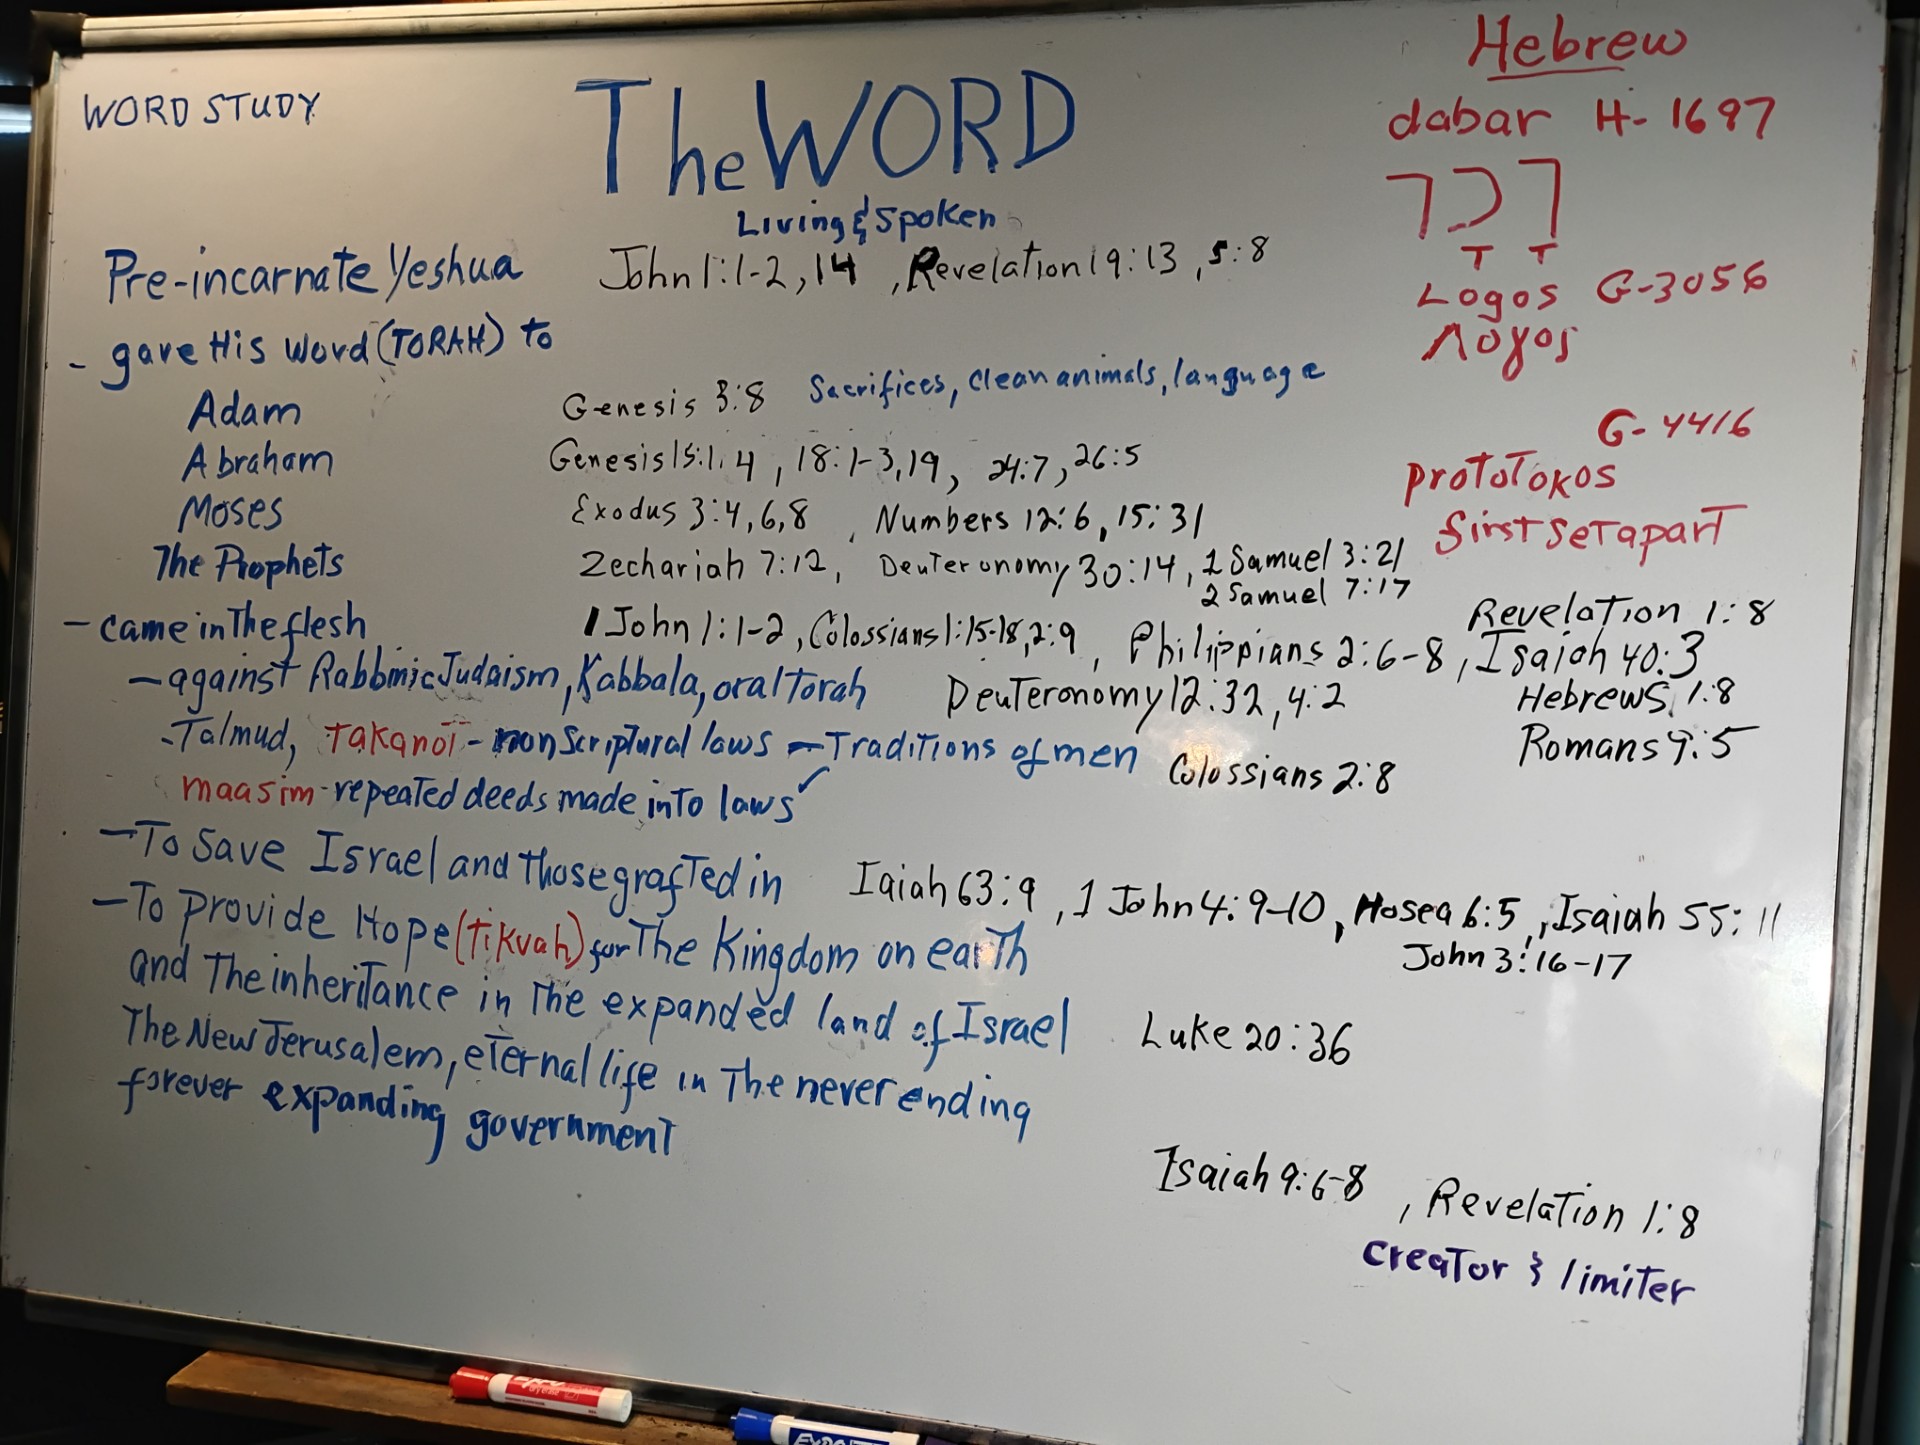 WORD STUDY
The WORD
Living & Spoken
Hebrew
dabar H-1697
דבר
T T
Logos G-3056
Λογος
Pre-incarnate Yeshua John 1:1-2, 14 , Revelation 19:13 , 5:8
- gave His Word (TORAH) to
Adam Genesis 3:8 Sacrifices, clean animals, language
Abraham Genesis 15:1,4 , 18:1-3,19, 24:7, 26:5
Moses Exodus 3:4,6,8 , Numbers 12:6, 15:31
The Prophets Zechariah 7:12, Deuteronomy 30:14, 1 Samuel 3:21
2 Samuel 7:17
G-4416
protoTokos
first seT aparT
- came in The flesh 1 John 1:1-2, Colossians 1:15-18, 2:9 , Philippians 2:6-8, Isaiah 40:3
Revelation 1:8
Hebrews 1:8
Romans 9:5
- against Rabbinic Judaism, Kabbala, oral Torah Deuteronomy 12:32, 4:2
- Talmud, Takanot - non Scriptural laws - Traditions of men Colossians 2:8
maasim - repeated deeds made into laws ✓
- To Save Israel and those grafted in Iaiah 63:9 , 1 John 4:9-10, Hosea 6:5, Isaiah 55:11
John 3:16-17
- To provide Hope (Tikvah) for The Kingdom on earth
and The inheritance in The expanded land of Israel Luke 20:36
The New Jerusalem, eternal life in The never ending
forever expanding government
Isaiah 9:6-8 , Revelation 1:8
creator & limiter
EXPO
EXPO